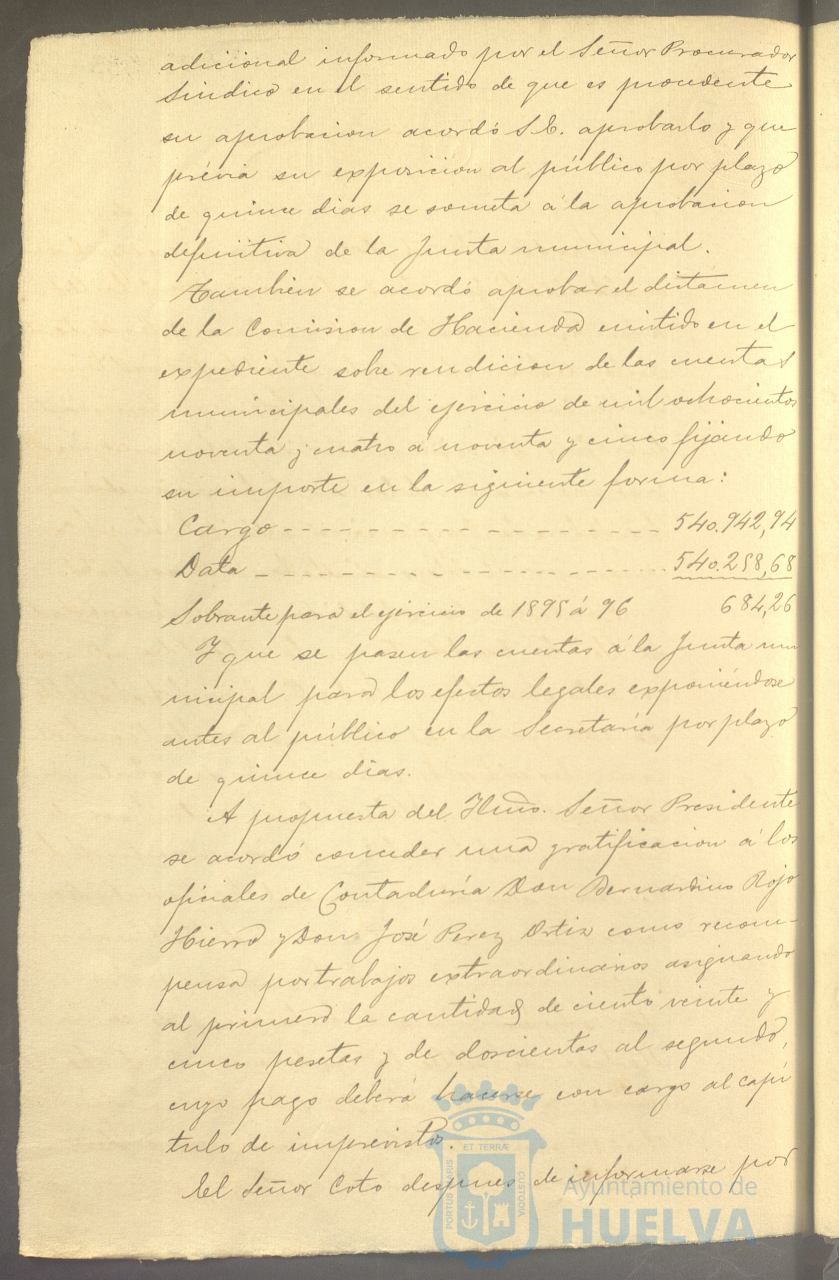 adicional informado por el Señor Procurador
Sindico en el sentido de que es procedente
su aprobacion acordó S.E. aprobarlo y que
prévia su exposicion al público por plazo
de quince dias se someta á la aprobacion
definitiva de la Junta municipal.
Tambien se acordó aprobar el dictamen
de la Comision de Hacienda emitido en el
expediente sobre rendicion de las cuentas
municipales del ejercicio de mil ochocientos
noventa y cuatro a noventa y cinco fijando
su importe en la siguiente forma:
Cargo 540.942,94
Data 540.258,68
Sobrante para el ejercicio de 1895 á 96 684,26
Y que se pasen las cuentas á la Junta mu
nicipal para los efectos legales exponiéndose
antes al público en la Secretaría por plazo
de quince dias.
A propuesta del Iltmo. Señor Presidente
se acordó conceder una gratificacion á los
oficiales de Contaduría Don Bernardino Rojo
Hierro y Don José Perez Ortiz como recom-
pensa por trabajos extraordinarios asignando
al primero la cantidad de ciento veinte y
cinco pesetas y de doscientas al segundo,
cuyo pago deberá hacerse con cargo al capí
tulo de imprevistos.
El Señor Coto despues de informarse por
PORTUS MARIS ET TERRÆ CUSTODIA
Ayuntamiento de
HUELVA